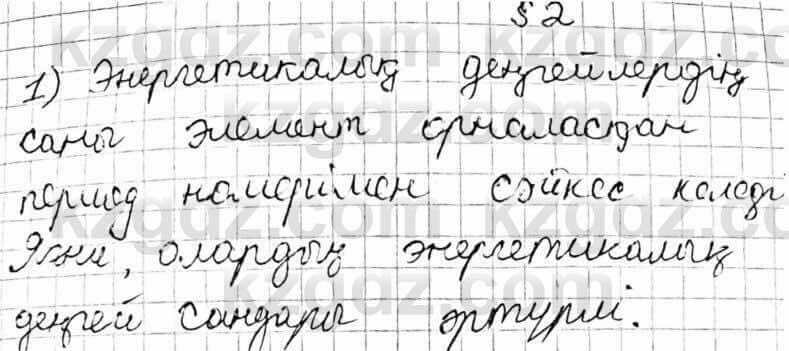 §2
1) Энергетикалық деңгейлердің
саны элемент орналасқан
период номерімен сәйкес келеді
Яғни, олардың энергетикалық
деңгей сандары әртүрлі.
kzgdz.com kzgdz.com
kzgdz.com kzgdz.com
kzgdz.com kzgdz.com
kzgdz.com kzgdz.com